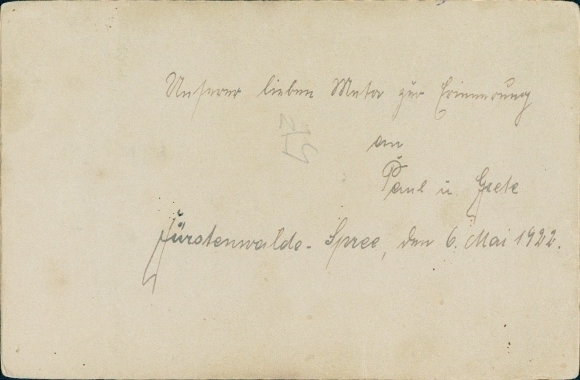 Unserer lieben Meta zur Erinnerung
an
Paul u. Grete
Fürstenwalde-Spree, den 6. Mai 1922.